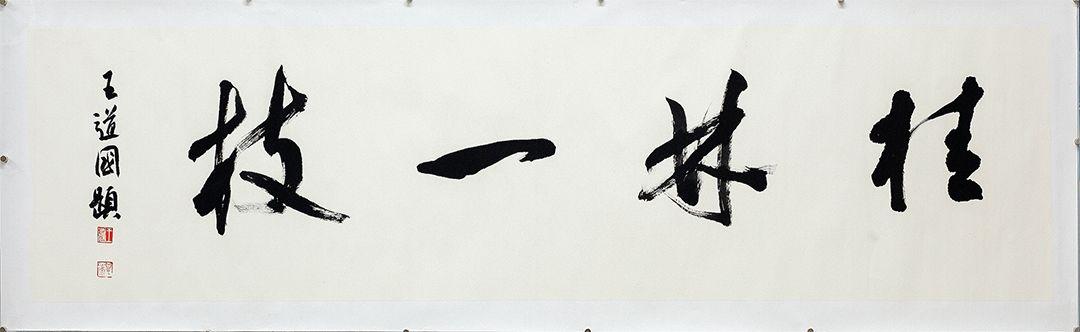 桂林一枝
王道國題